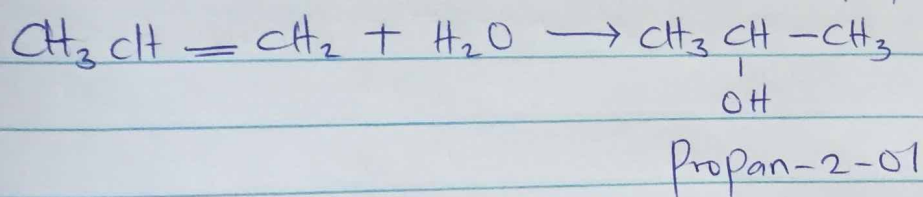 CH₃CH = CH₂ + H₂O → CH₃CH-CH₃
|
OH
Propan-2-ol